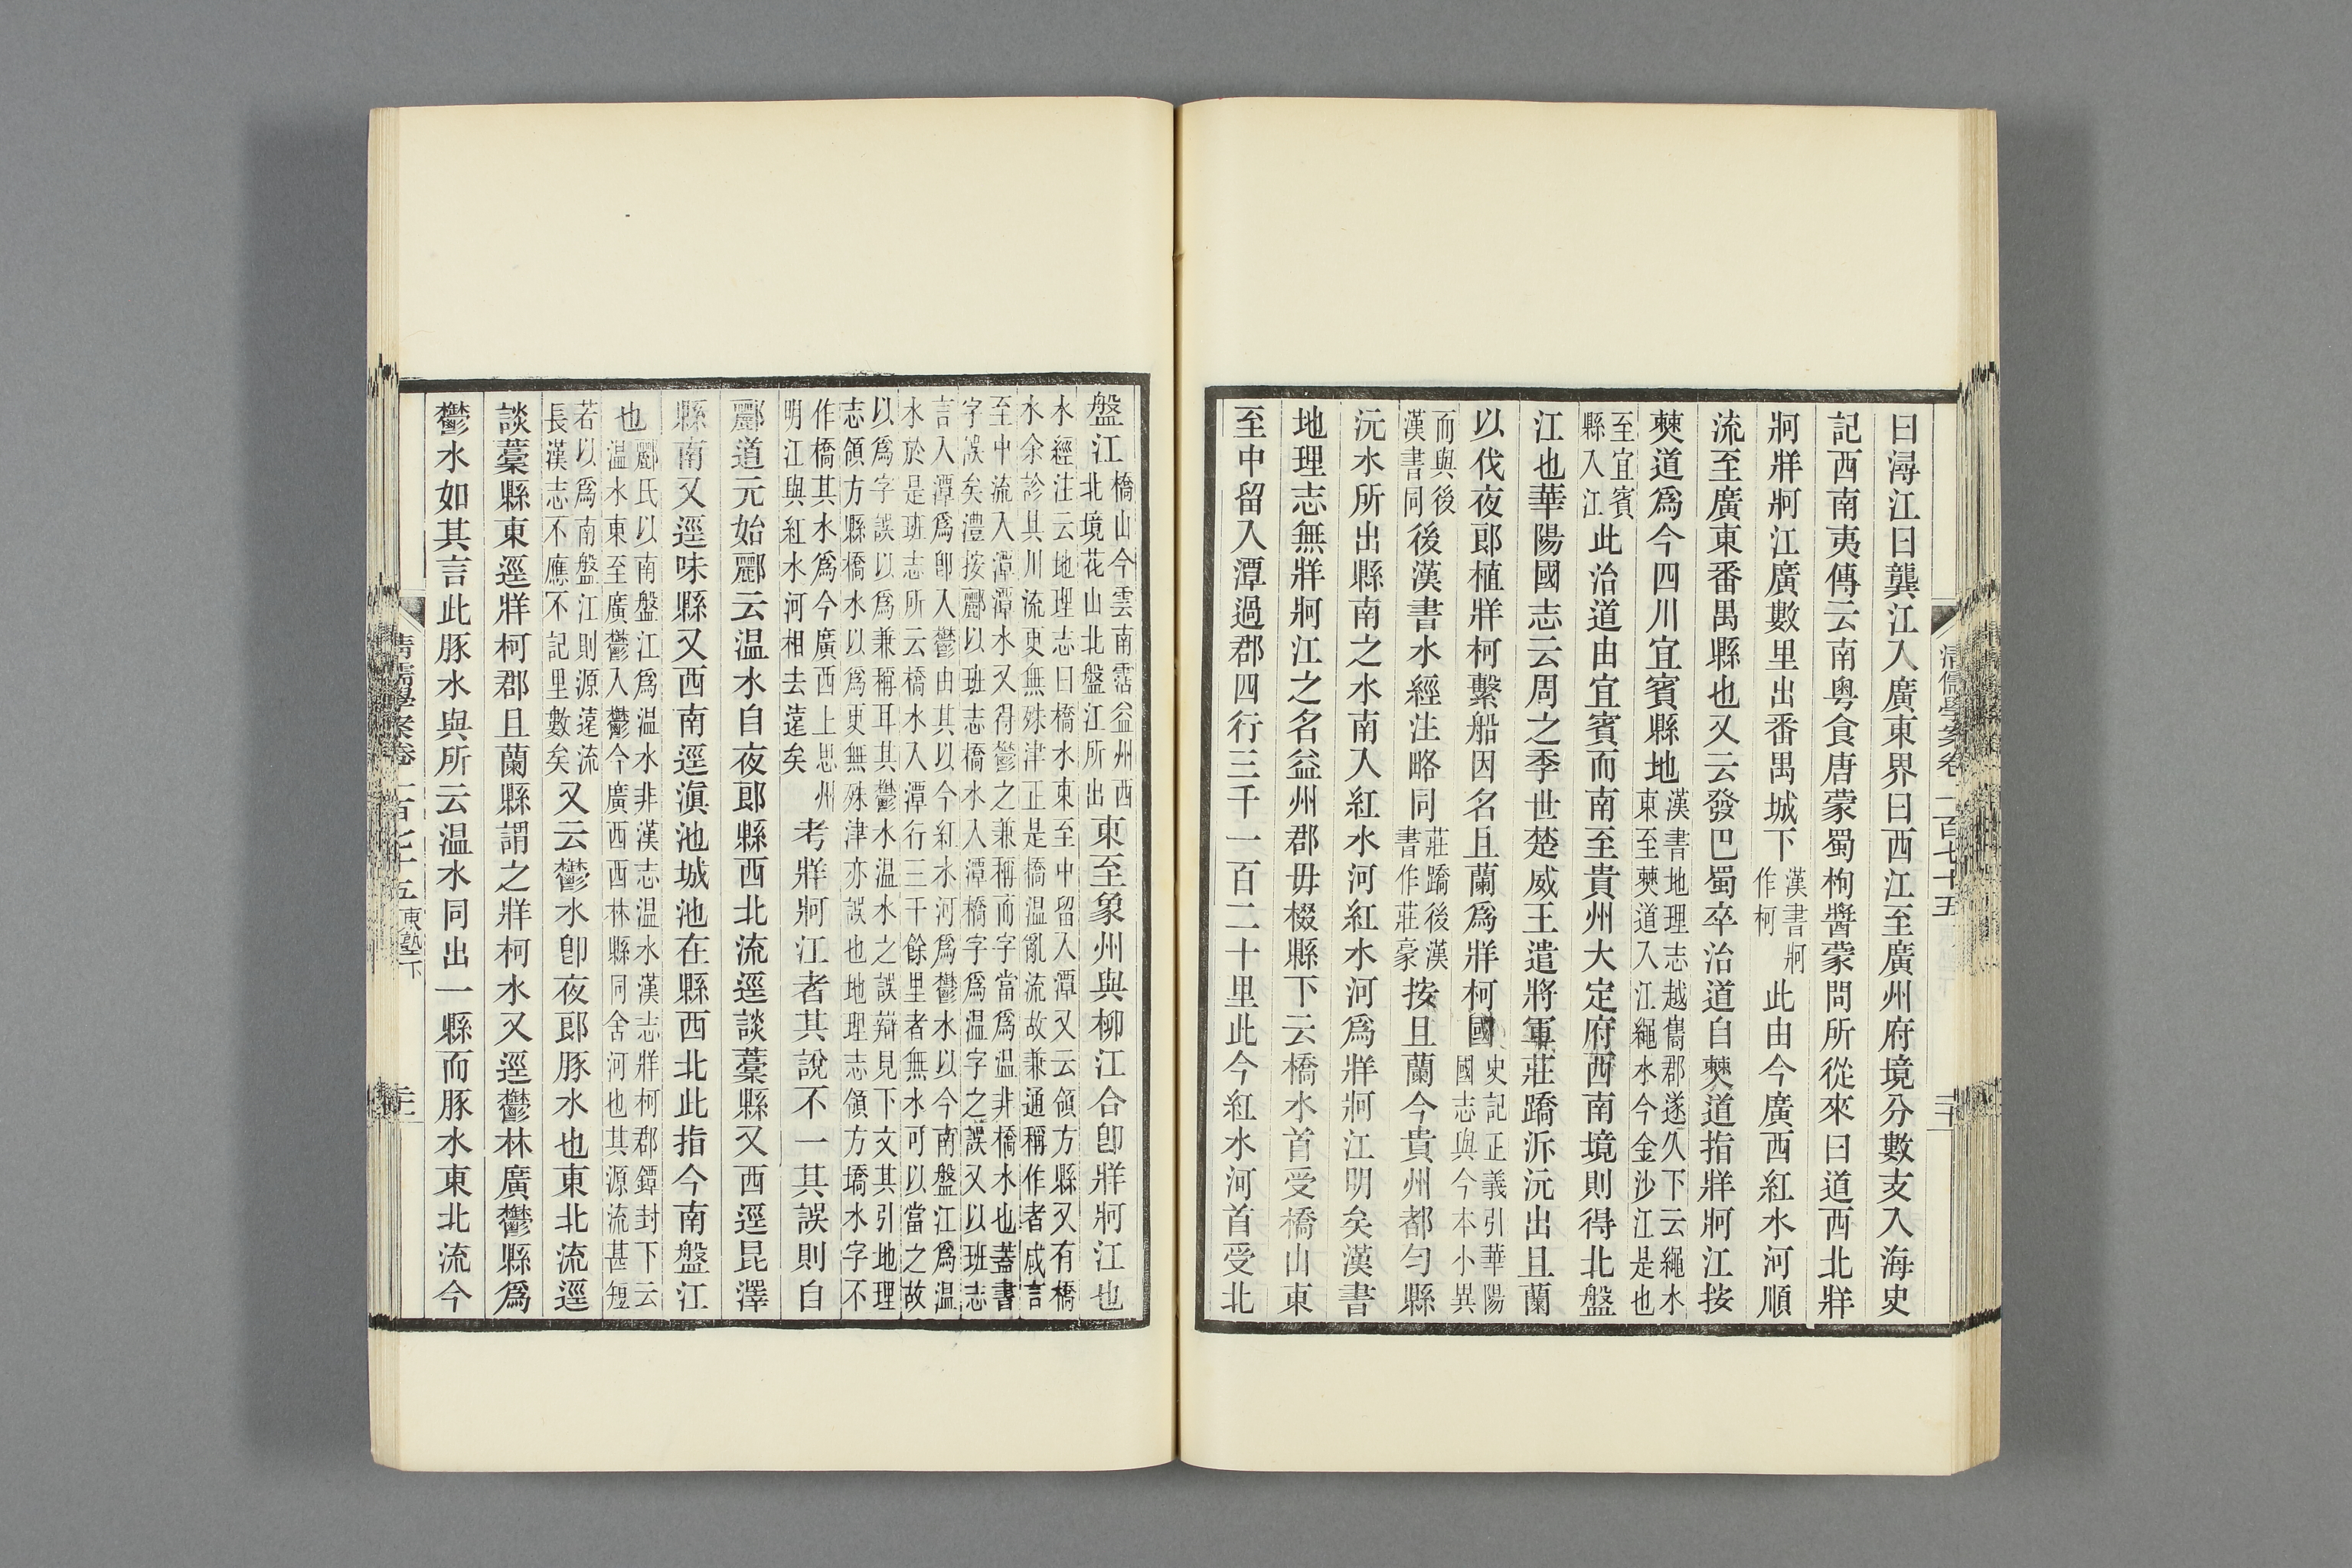 曰潯江曰龔江入廣東界曰西江至廣州府境分數支入海史
記西南夷傳云南粤食唐蒙蜀枸醬蒙問所從來曰道西北牂
牁牂牁江廣數里出番禺城下漢書牁作柯此由今廣西紅水河順
流至廣東番禺縣也又云發巴蜀卒治道自僰道指牂牁江按
僰道爲今四川宜賓縣地漢書地理志越巂郡遂久下云繩水東至僰道入江繩水今金沙江是也
至宜賓縣入江此治道由宜賓而南至貴州大定府西南境則得北盤
江也華陽國志云周之季世楚威王遣將軍莊蹻泝沅出且蘭
以伐夜郎植牂柯繫船因名且蘭爲牂柯國史記正義引華陽國志與今本小異
而與後漢書同後漢書水經注略同莊蹻後漢書作莊豪按且蘭今貴州都勻縣
沅水所出縣南之水南入紅水河紅水河爲牂牁江明矣漢書
地理志無牂牁江之名益州郡毋棳縣下云橋水首受橋山東
至中留入潭過郡四行三千一百二十里此今紅水河首受北
清儒學案卷一百七十五
盤江橋山今雲南霑益州西北境花山北盤江所出東至象州與柳江合卽牂牁江也
水經注云地理志曰橋水東至中留入潭又云領方縣又有橋
水余診其川流更無殊津正是橋溫亂流故兼通稱作者咸言
至中流入潭潭水又得鬱之兼稱而字當爲温非橋水也蓋書
字誤矣澧按酈以班志橋水入潭橋字爲温字之誤又以班志
言入潭爲卽入鬱由其以今紅水河爲鬱水以今南盤江爲温
水於是班志所云橋水入潭行三千餘里者無水可以當之故
以爲字誤以爲兼稱耳其鬱水温水之誤辯見下文其引地理
志領方縣橋水以爲更無殊津亦誤也地理志領方墧水字不
作橋其水爲今廣西上思州明江與紅水河相去遠矣考牂牁江者其說不一其誤則自
酈道元始酈云温水自夜郎縣西北流逕談藁縣又西逕昆澤
縣南又逕味縣又西南逕滇池城池在縣西北此指今南盤江
也酈氏以南盤江爲温水非漢志温水漢志牂柯郡鐔封下云温水東至廣鬱入鬱今廣西西林縣同舍河也其源流甚短
若以爲南盤江則源遠流長漢志不應不記里數矣又云鬱水卽夜郎豚水也東北流逕
談藁縣東逕牂柯郡且蘭縣謂之牂柯水又逕鬱林廣鬱縣爲
鬱水如其言此豚水與所云温水同出一縣而豚水東北流今
清儒學案卷一百七十五 東塾下